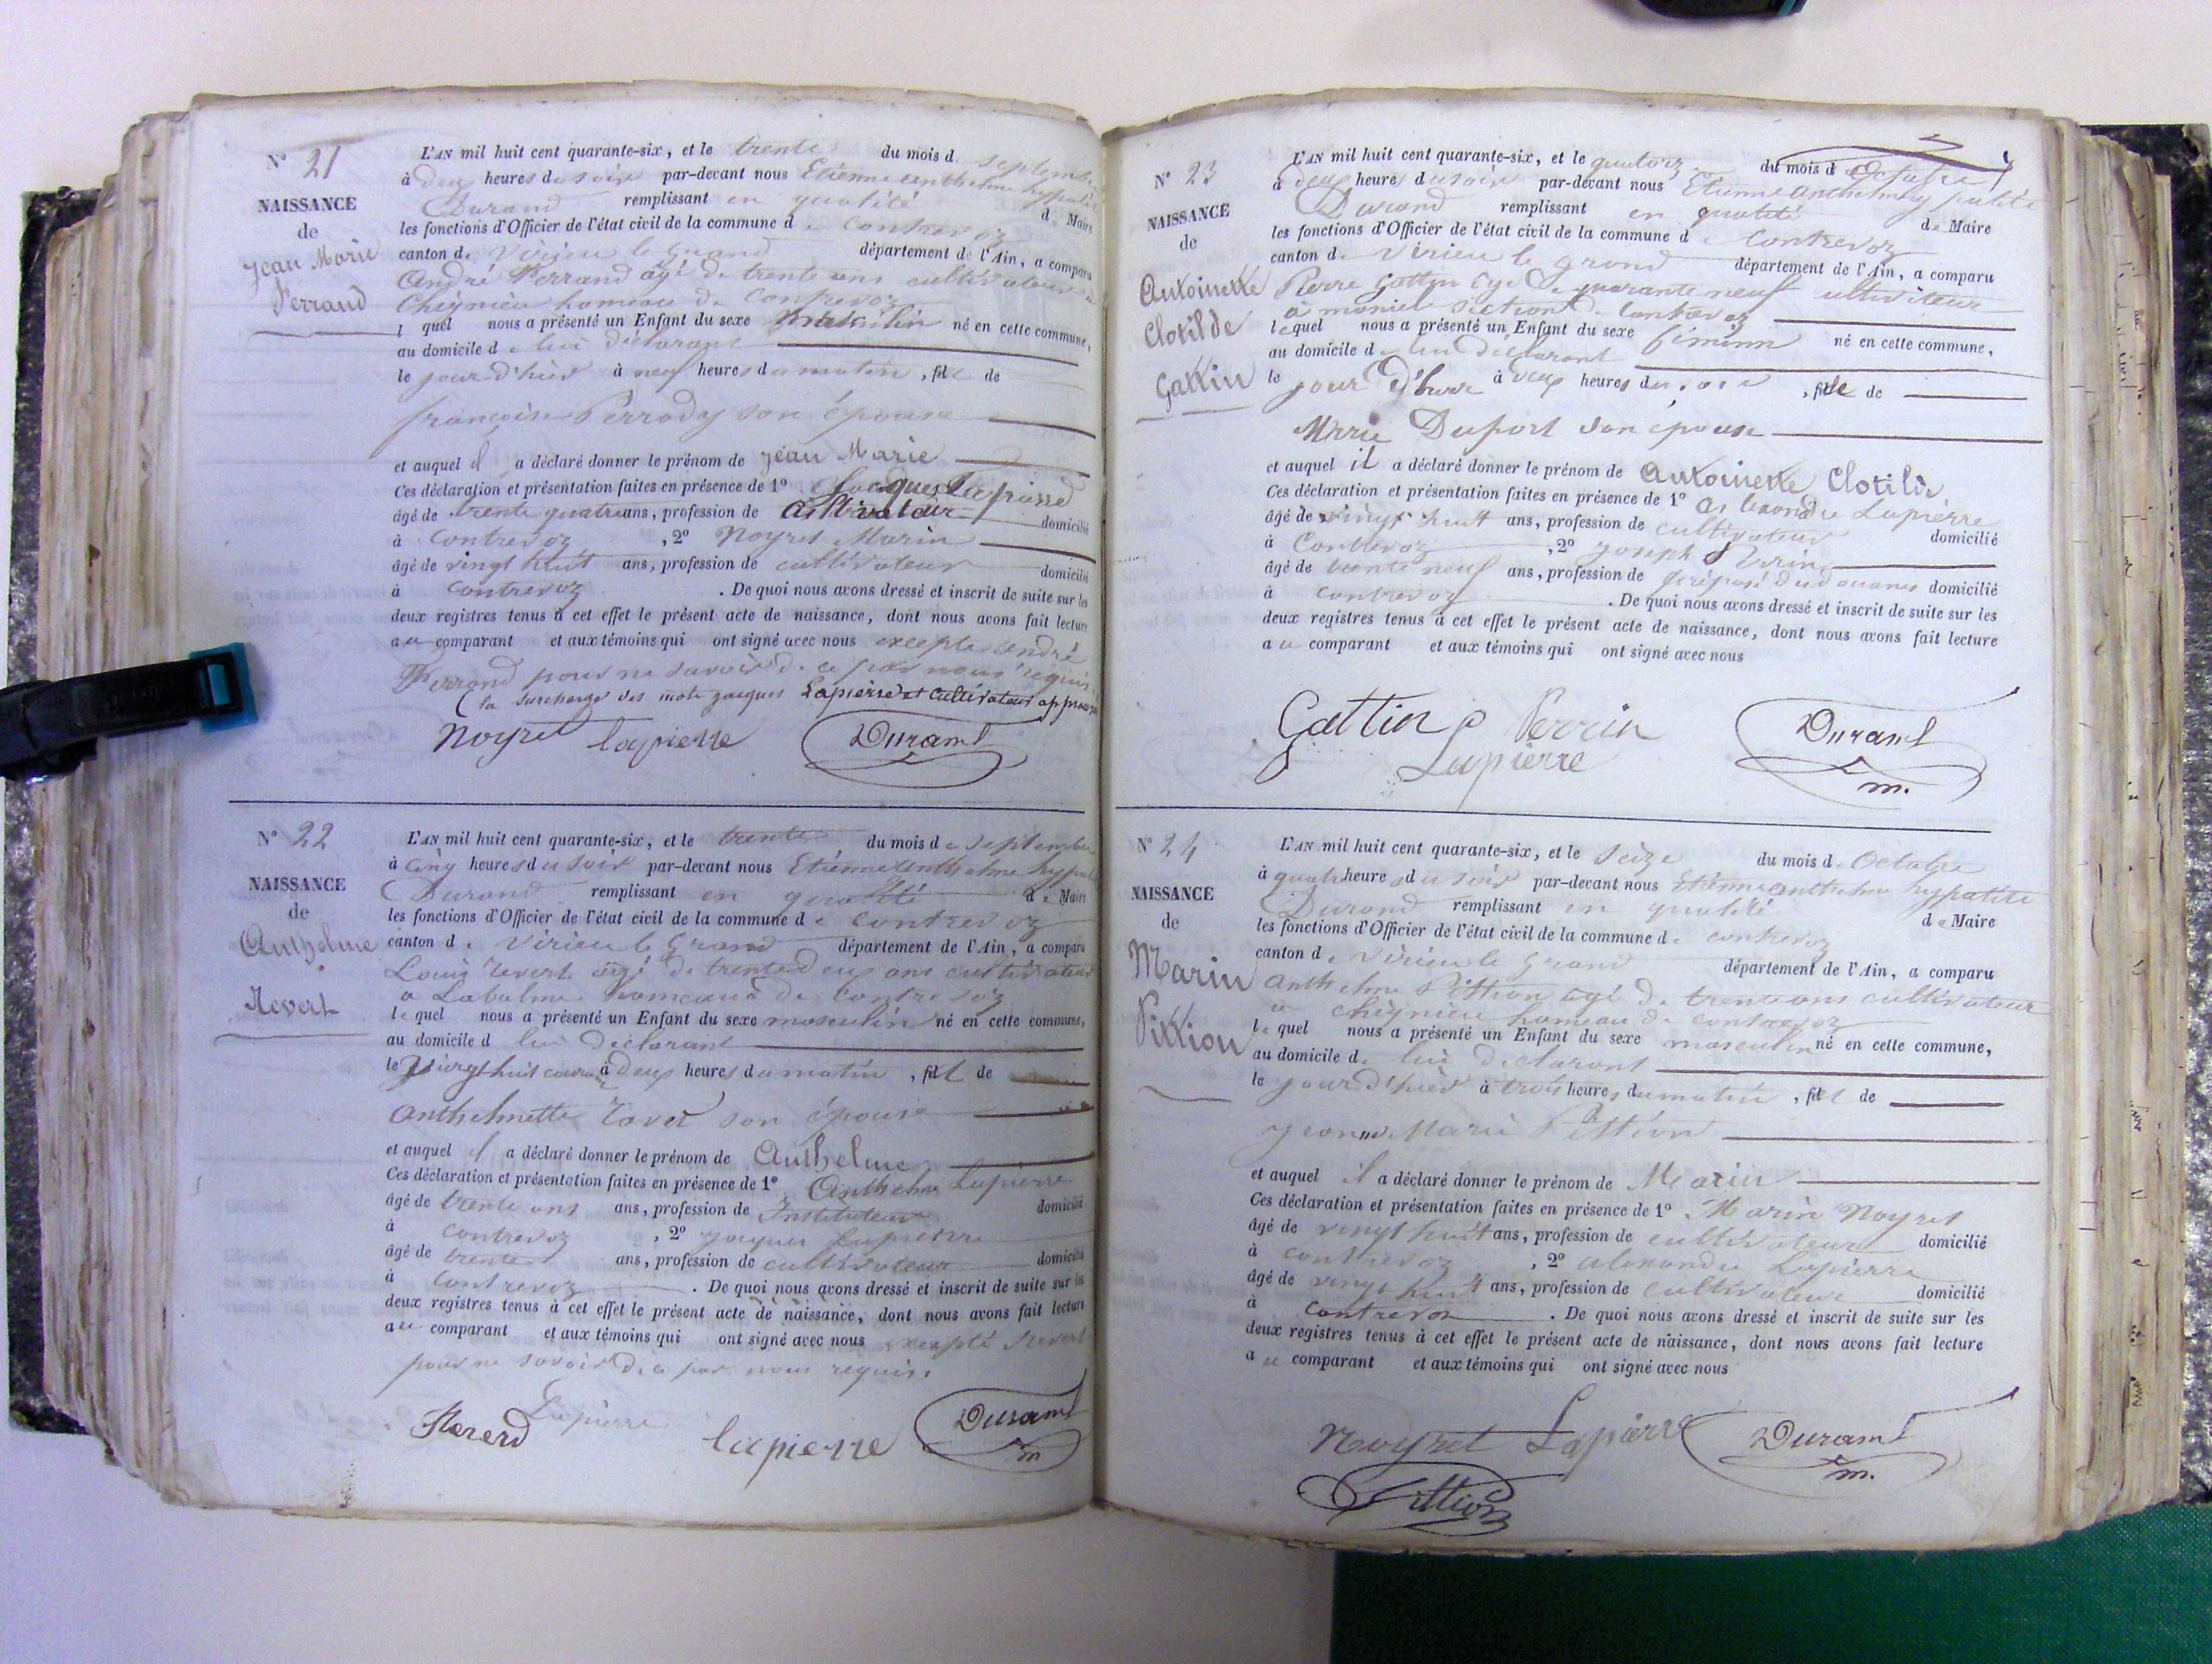 N° 21
NAISSANCE
de
Jean Marie
Perrand
L'AN mil huit cent quarante-six, et le trente du mois de septembre
à deux heures du soir par-devant nous Etienne anthelme hypolite
Durand remplissant en qualité de Maire
les fonctions d'Officier de l'état civil de la commune de contrevoz
canton de Virieu le grand département de l'Ain, a comparu
André Perrand agé de trente ans cultivateur à
Cheignieu hameau de Contrevoz
lequel nous a présenté un Enfant du sexe masculin né en cette commune,
au domicile de lui déclarant
le jour d'hier à neuf heures du matin, fils de
françoise Perrody son épouse
et auquel il a déclaré donner le prénom de Jean Marie
Ces déclaration et présentation faites en présence de 1° Jacques Lapierre
âgé de trente quatre ans, profession de cultivateur domicilié
à Contrevoz, 2° Noyret Marin
âgé de vingt huit ans, profession de cultivateur domicilié
à contrevoz. De quoi nous avons dressé et inscrit de suite sur les
deux registres tenus à cet effet le présent acte de naissance, dont nous avons fait lecture
au comparant et aux témoins qui ont signé avec nous excepté andré
Perrand pour ne savoir de ce par nous requis.
(la surcharge des mots jacques Lapierre et cultivateur approuvée
Noyret lapierre Durand
N° 22
NAISSANCE
de
Anthelme
Revert
L'AN mil huit cent quarante-six, et le trente du mois de septembre
à cinq heures du soir par-devant nous Etienne anthelme hypolite
Durand remplissant en qualité de Maire
les fonctions d'Officier de l'état civil de la commune de contrevoz
canton de Virieu le Grand département de l'Ain, a comparu
Louis revert âgé de trente deux ans cultivateur
a Labalme hameau de Contrevoz
lequel nous a présenté un Enfant du sexe masculin né en cette commune,
au domicile d lui declarant
le vingt huit courant à deux heures du matin, fils de
anthelmette son épouse
et auquel il a déclaré donner le prénom de Anthelme
Ces déclaration et présentation faites en présence de 1° Anthelme Lapierre
âgé de trente ans ans, profession de Instituteur domicilié
à contrevoz, 2° Jacques Lapierre
âgé de trente ans, profession de cultivateur domicilié
à Contrevoz. De quoi nous avons dressé et inscrit de suite sur les
deux registres tenus à cet effet le présent acte de naissance, dont nous avons fait lecture
au comparant et aux témoins qui ont signé avec nous excepté Revert
pour ne savoir de ce par nous requis.
Lapierre lapierre Durand
m
N° 23
NAISSANCE
de
Antoinette
Clotilde
Gattin
L'AN mil huit cent quarante-six, et le quatorze du mois d Octobre
à deux heures du soir par-devant nous Etienne anthelme hypolite
Durand remplissant en qualité de Maire
les fonctions d'Officier de l'état civil de la commune de Contrevoz
canton de Virieu le grand département de l'Ain, a comparu
Pierre Gattin âgé de quarante neuf cultivateur
à section de Contrevoz
lequel nous a présenté un Enfant du sexe féminin né en cette commune,
au domicile de lui déclarant
le jour à deux heures du soir, fille de
Marie Duport son épouse
et auquel il a déclaré donner le prénom de Antoinette Clotilde
Ces déclaration et présentation faites en présence de 1° Alexandre Lapierre
âgé de vingt huit ans, profession de cultivateur domicilié
à Contrevoz, 2° joseph Perrin
âgé de trente neuf ans, profession de préposé des douanes domicilié
à contrevoz. De quoi nous avons dressé et inscrit de suite sur les
deux registres tenus à cet effet le présent acte de naissance, dont nous avons fait lecture
au comparant et aux témoins qui ont signé avec nous
Gattin P Perrin Durand
Lapierre m.
N° 24
NAISSANCE
de
Marin
Pittion
L'AN mil huit cent quarante-six, et le seize du mois de Octobre
à quatre heures du soir par-devant nous Etienne anthelme hypolite
Durand remplissant en qualité de Maire
les fonctions d'Officier de l'état civil de la commune de contrevoz
canton de Virieu le Grand département de l'Ain, a comparu
anthelme Pittion agé de trente ans cultivateur
a cheignieu hameau de contrevoz
lequel nous a présenté un Enfant du sexe masculin né en cette commune,
au domicile de lui declarant
le jour d'hier à trois heures du matin, fils de
jeanne Marie Pittion
et auquel il a déclaré donner le prénom de Marin
Ces déclaration et présentation faites en présence de 1° Marin Noyret
âgé de vingt huit ans, profession de cultivateur domicilié
à contrevoz, 2° alexandre Lapierre
âgé de vingt huit ans, profession de cultivateur domicilié
à contrevoz. De quoi nous avons dressé et inscrit de suite sur les
deux registres tenus à cet effet le présent acte de naissance, dont nous avons fait lecture
au comparant et aux témoins qui ont signé avec nous
Noyret Lapierre Durand
m.
Pittion